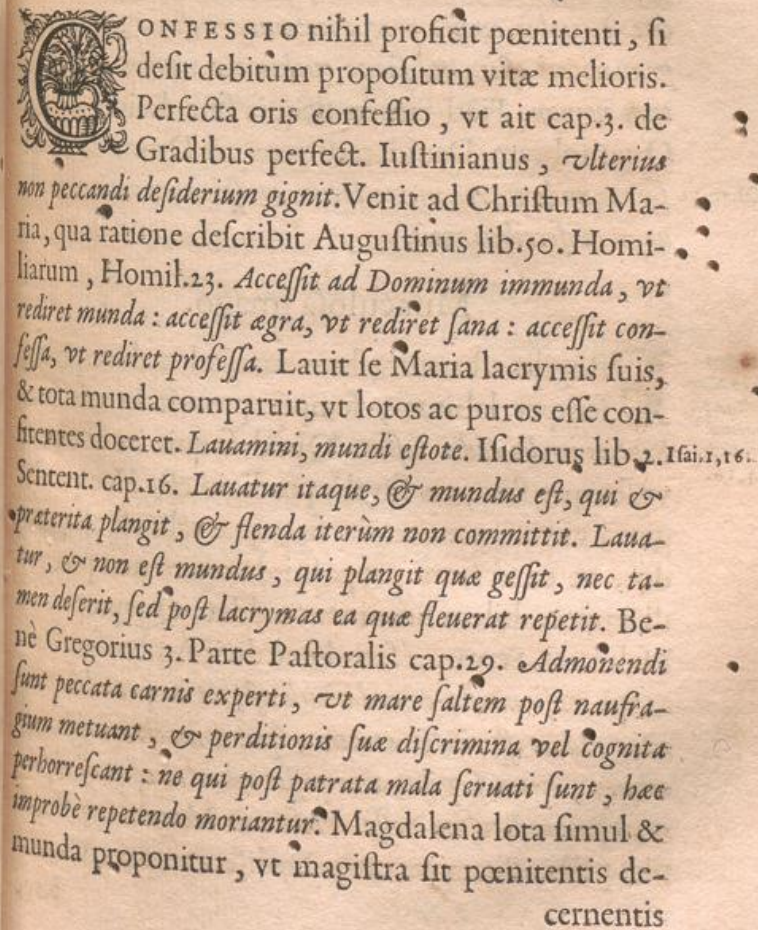 CONFESSIO nihil proficit pœnitenti, ſi
deſit debitum propoſitum vitæ melioris.
Perfecta oris confeſſio, vt ait cap.3. de
Gradibus perfect. Iuſtinianus, vlterius
non peccandi deſiderium gignit. Venit ad Chriſtum Ma-
ria, qua ratione deſcribit Auguſtinus lib.50. Homi-
liarum, Homil.23. Acceſſit ad Dominum immunda, vt
rediret munda : acceſſit ægra, vt rediret ſana : acceſſit con-
feſſa, vt rediret profeſſa. Lauit ſe Maria lacrymis ſuis,
& tota munda comparuit, vt lotos ac puros eſſe con-
fitentes doceret. Lauamini, mundi eſtote. Iſidorus lib.2. Iſai.1,16.
Sentent. cap.16. Lauatur itaque, & mundus eſt, qui &
præterita plangit, & flenda iterùm non committit. Laua-
tur, & non eſt mundus, qui plangit quæ geſſit, nec ta-
men deſerit, ſed poſt lacrymas ea quæ fleuerat repetit. Be-
nè Gregorius 3. Parte Paſtoralis cap.29. Admonendi
ſunt peccata carnis experti, vt mare ſaltem poſt naufra-
gium metuant, & perditionis ſuæ diſcrimina vel cognita
perhorreſcant : ne qui poſt patrata mala ſeruati ſunt, hæc
improbè repetendo moriantur. Magdalena lota ſimul &
munda proponitur, vt magiſtra ſit pœnitentis de-
cernentis